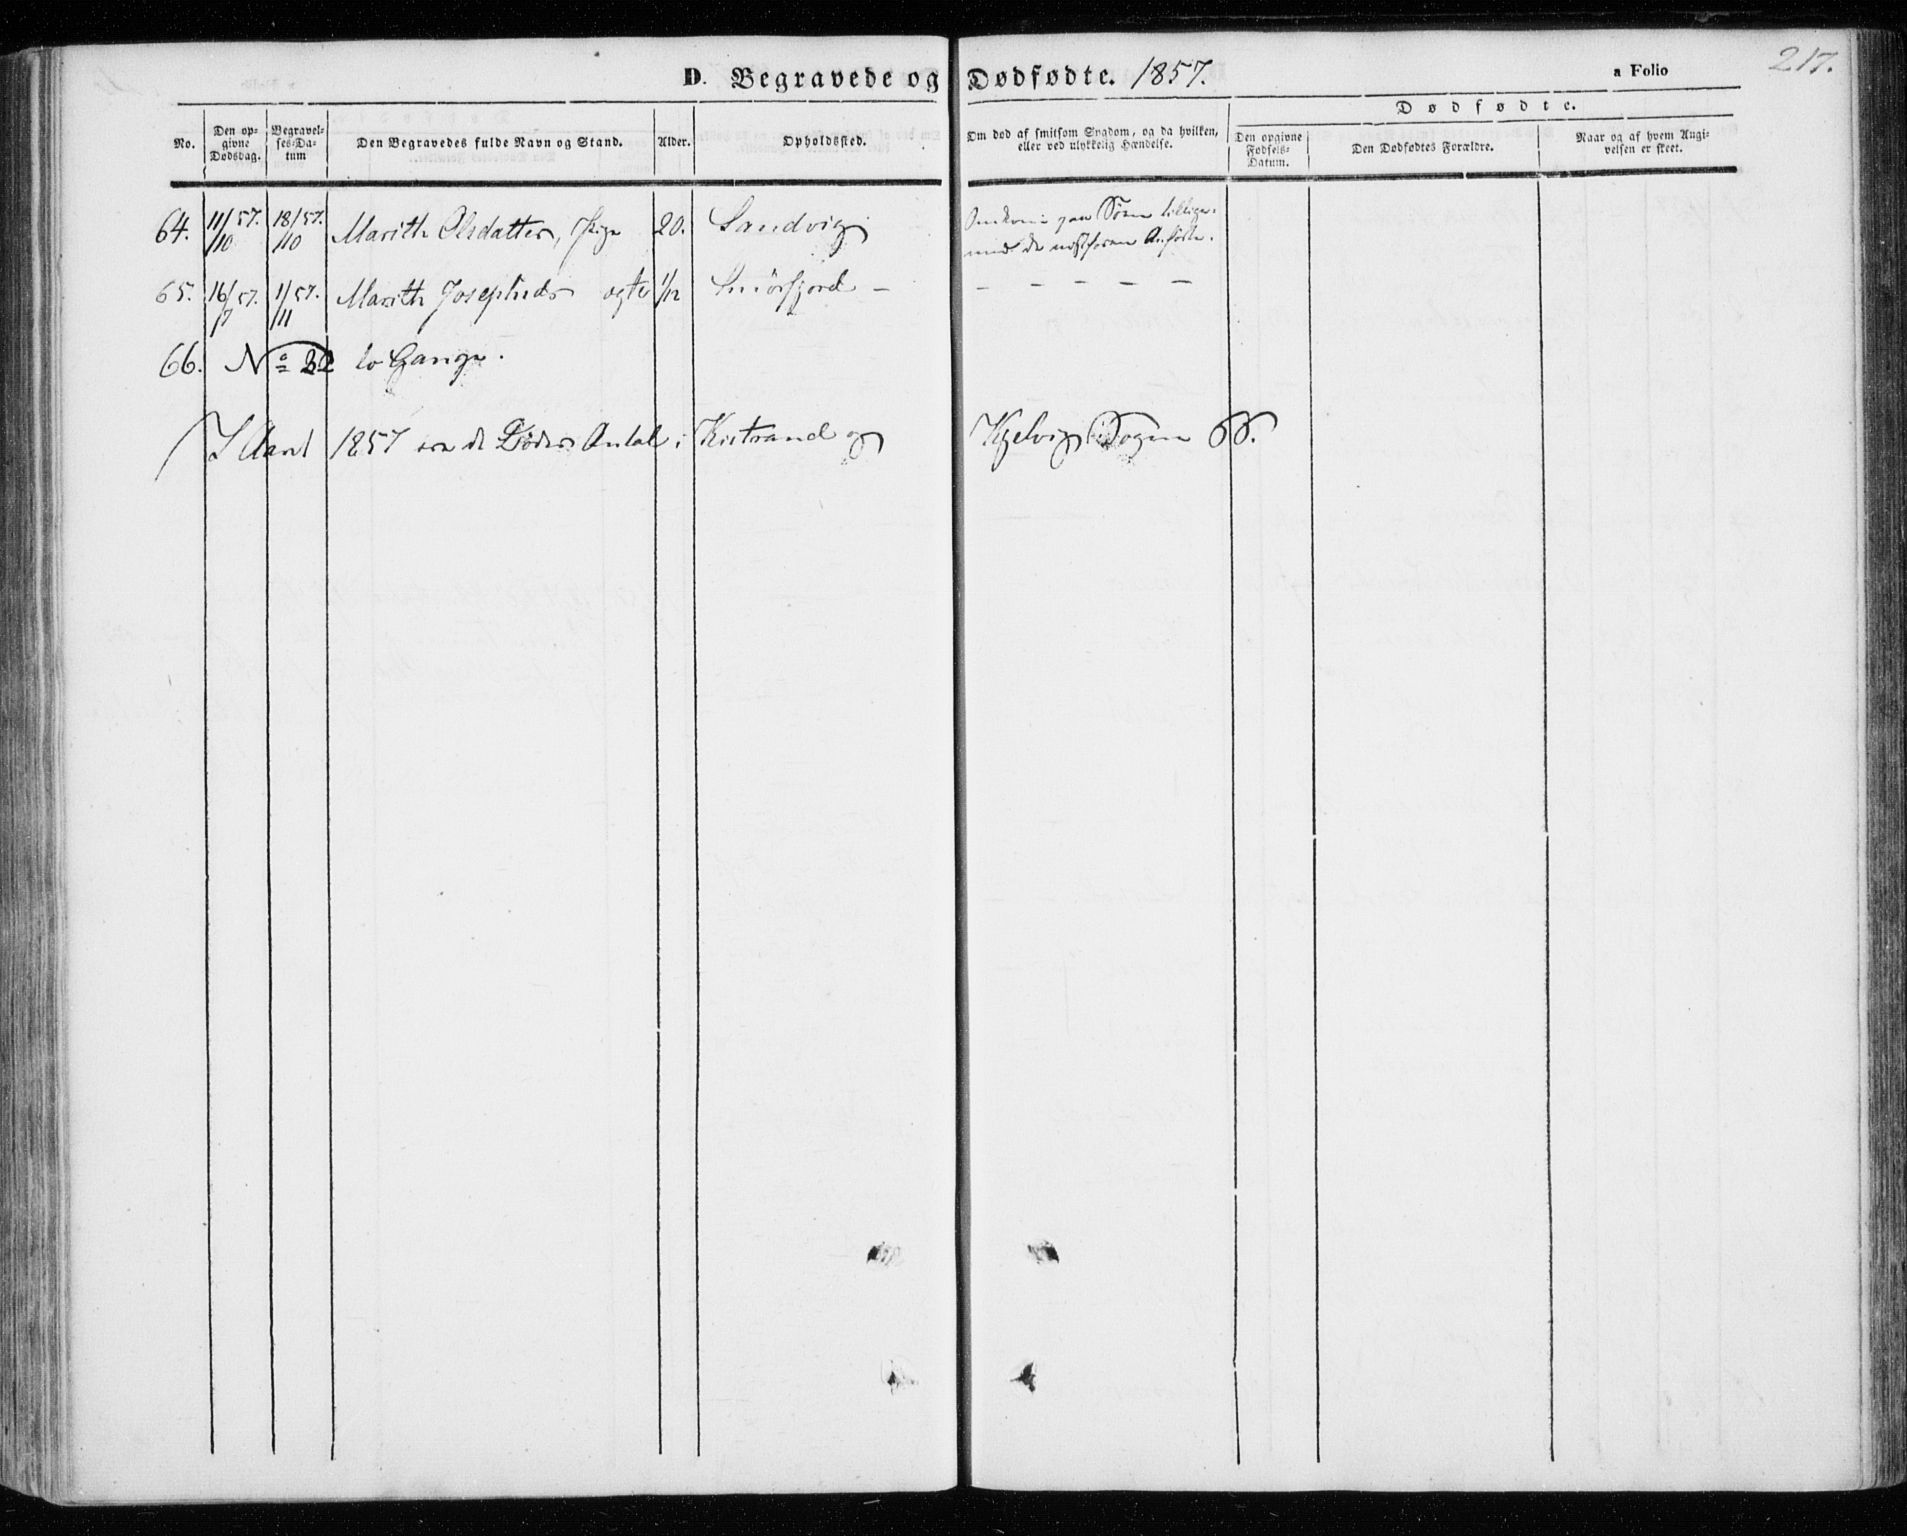 217.
D. Begravede og Dødfødte. 1857. a Folio
No.
Den opgivne Dødsdag.
Begravelses-Datum
Den Begravedes fulde Navn og Stand.
Alder.
Opholdssted.
Om død af smitsom Sygdom, og da hvilken, eller ved ulykkelig Hændelse.
Dødfødte.
Den opgivne Fødsels-Datum.
Den Dødfødtes Forældre.
Naar og af hvem Angivelsen er skeet.
64. 11/10 57. 18/10 57. Marith Olsdatter, Pige 20. Sandvig Omkom paa Søen tillige-
med de næstforan Anførte.
65. 16/7 57. 1/11 57. Marith Josephsdr ægte 1/12 Smörfjord – – – – – –
66. No 32 to Gange.
I Aaret 1857 ere de Dødes Antal i Kistrand og Kjelvig Sogne 66.